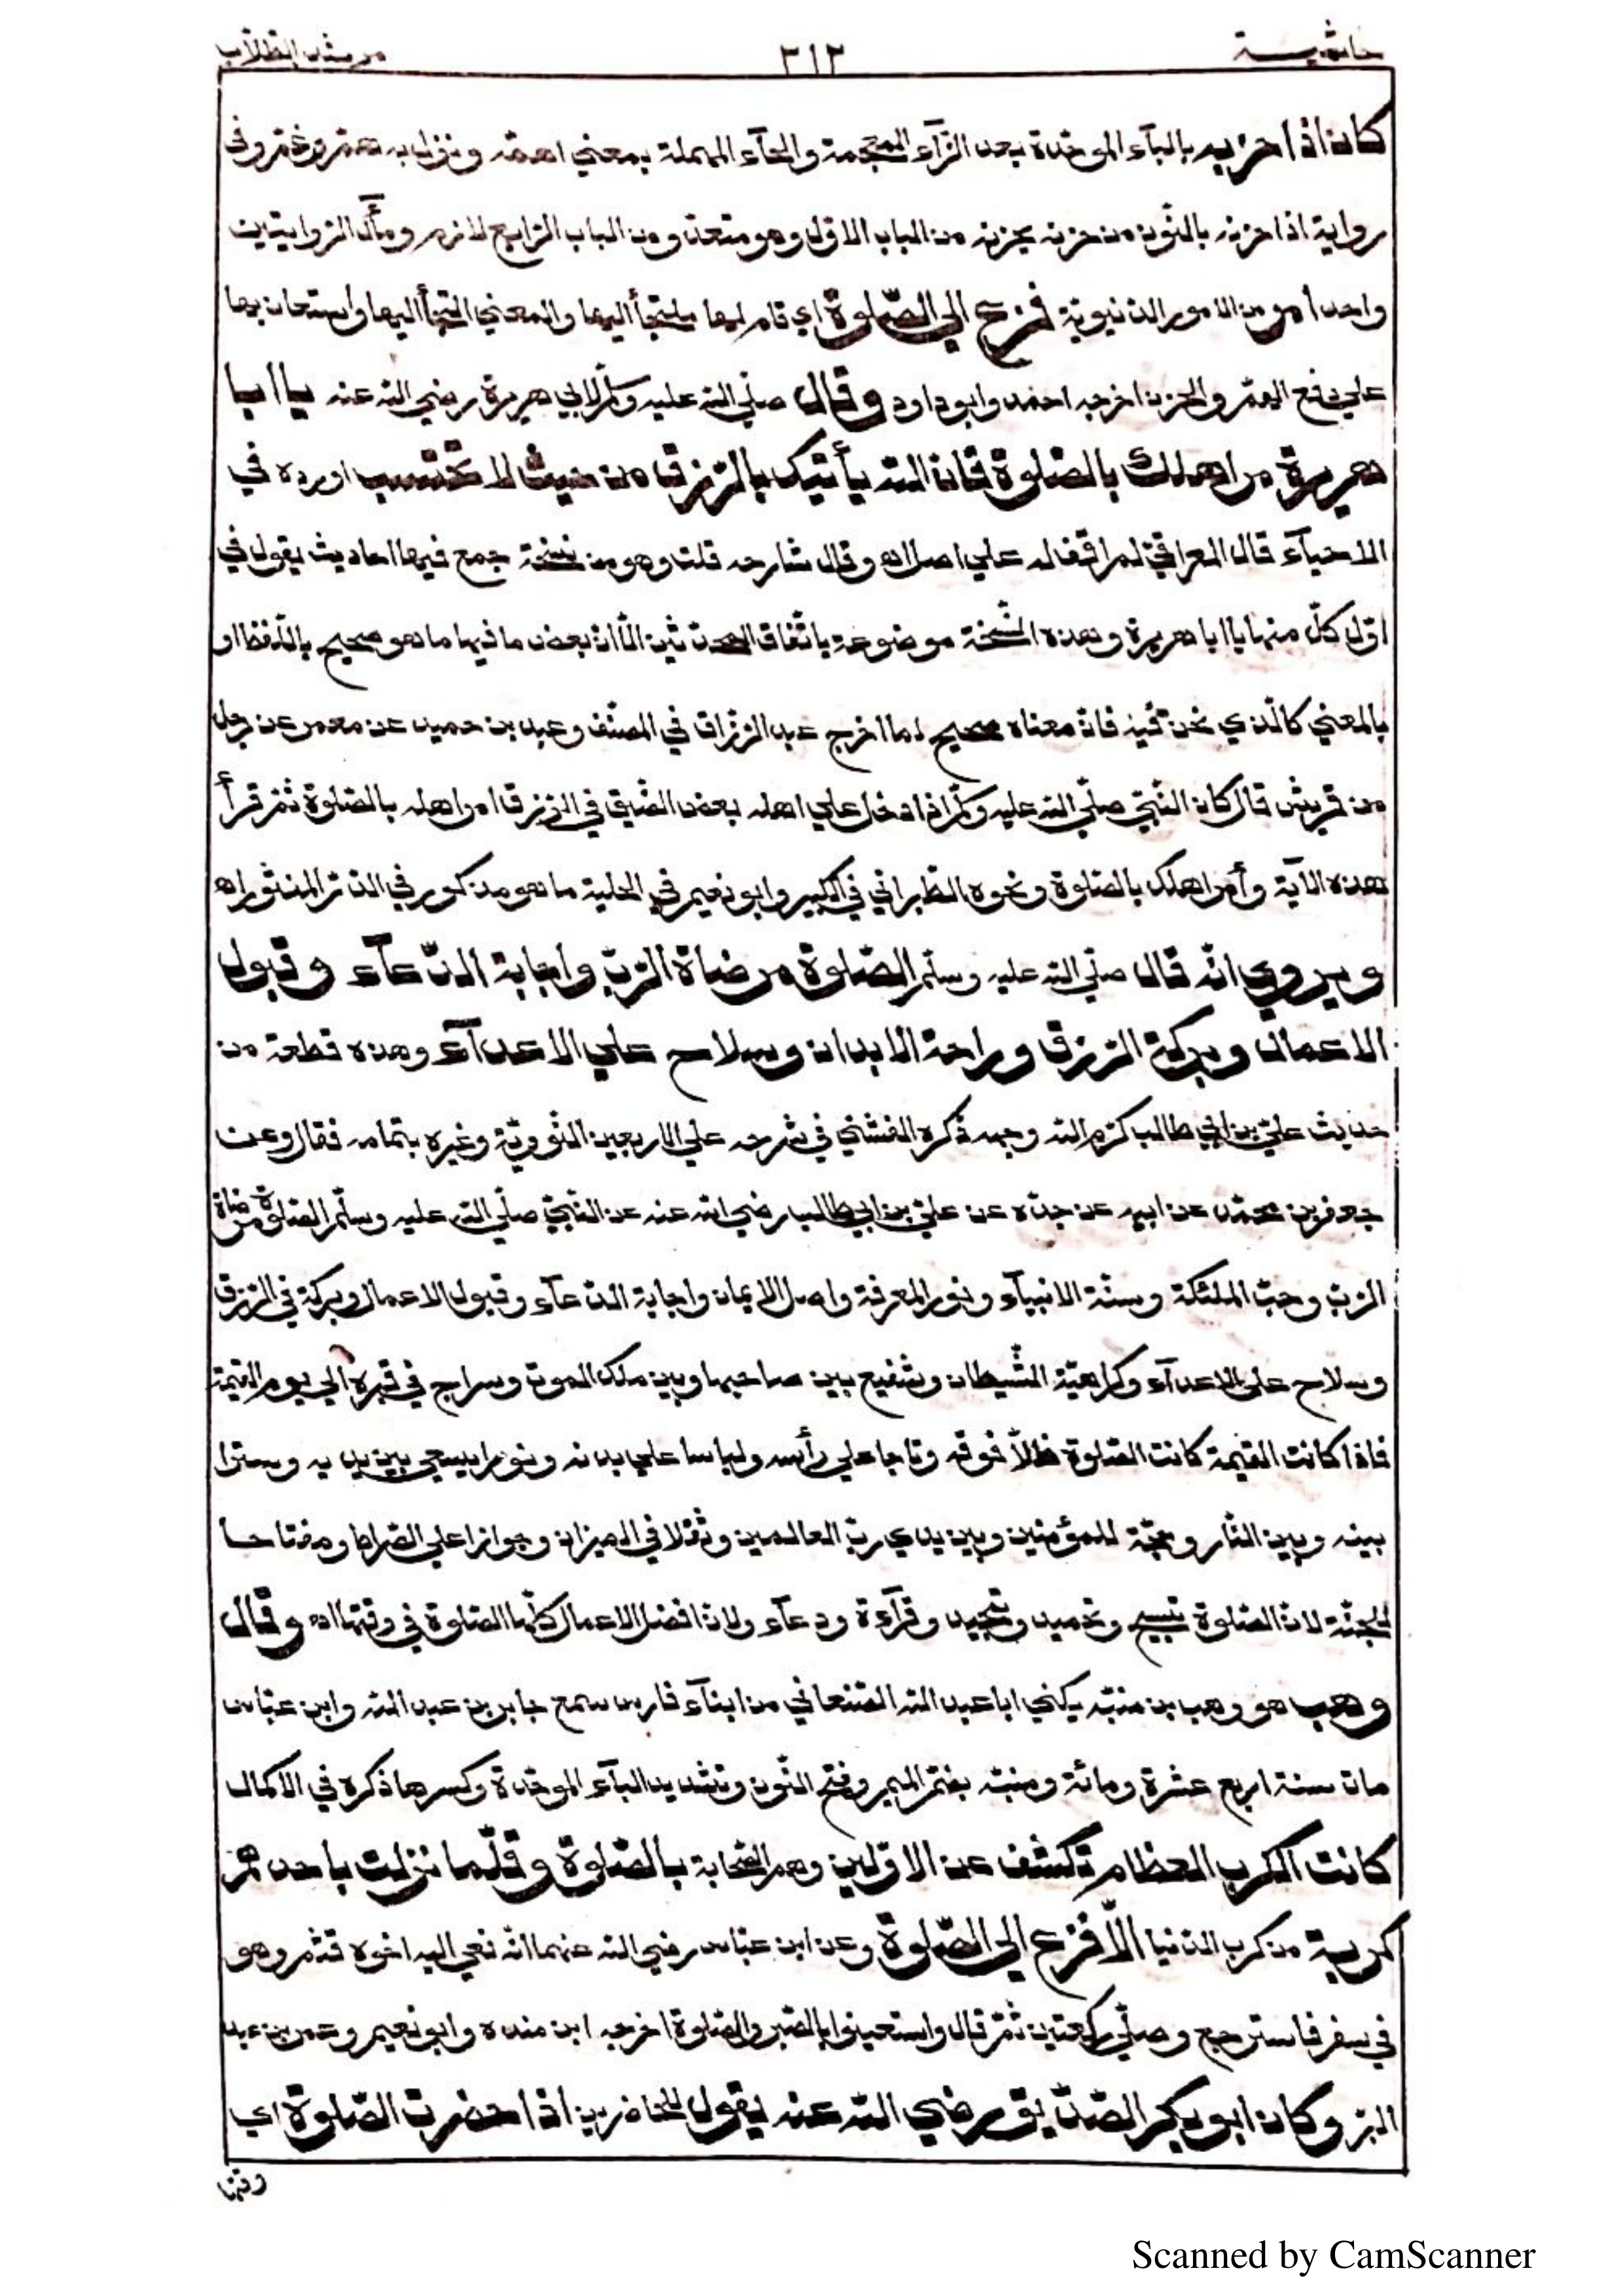 حاشية ٣١٢ مرشد الطلاب
كان اذا حزبه بالبآء الموحّدة بعد الزّآء المعجمة والحآء المهملة بمعني اهمّه ونزل به همّ وغمّ وفي
رواية اذا حزنه بالنّون من حزنه يحزنه من الباب الاوّل وهو متعدّ ومن الباب الرّابع لازم ومآل الرّوايتين
واحد امر من الامور الدّنيويّة فزع الي الصّلوة اي قام اليها ملتجأ اليها والمعني التجأ اليها واستعان بها
علي دفع الهمّ والحزن اخرجه احمد وابو داود وقال صلّي اللّه عليه وسلّم لابي هريرة رضي اللّه عنه يا ابا
هريرة مر اهلك بالصّلوة فانّ اللّه يأتيك بالرّزق من حيث لا تحتسب اورده في
الاحيآء قال العراقيّ لم اقف له علي اصل اه وقال شارحه قلت وهو من نسخة جمع فيها احاديث يقول في
اوّل كلّ منها يا ابا هريرة وهذه النّسخة موضوعة باتّفاق المحدّثين الّا انّ بعض ما فيها ما هو صحيح باللّفظ او
بالمعني كالّذي نحن فيه فانّ معناه صحيح لما اخرج عبد الرّزّاق في المصنّف وعبد بن حميد عن معمر عن رجل
من قريش قال كان النّبيّ صلّي اللّه عليه وسلّم اذا دخل علي اهله بعض الضّيق في الرّزق امر اهله بالصّلوة ثمّ قرأ
هذه الآية وأمر اهلك بالصّلوة ونحوه الطّبرانيّ في الكبير وابو نعيم في الحلية ما هو مذكور في الدّرّ المنثور اه
ويروي انّه قال صلّي اللّه عليه وسلّم الصّلوة مرضاة الرّبّ واجابة الدّعآء وقبول
الاعمال وبركة الرّزق وراحة الابدان وسلاح علي الاعدآء وهذه قطعة من
حديث عليّ بن ابي طالب كرّم اللّه وجهه ذكره الفشنيّ في شرحه علي الاربعين النّوويّة وغيره بتمامه فقال وعن
جعفر بن محمّد عن ابيه عن جدّه عن عليّ بن ابي طالب رضي اللّه عنه عن النّبيّ صلّي اللّه عليه وسلّم الصّلوة مرضاة
الرّبّ وحبّ الملئكة وسنّة الانبيآء ونور المعرفة واصل الايمان واجابة الدّعآء وقبول الاعمال وبركة في الرّزق
وسلاح علي الاعدآء وكراهيّة الشّيطان وشفيع بين صاحبها وبين ملك الموت وسراج في قبره الي يوم القيمة
فاذا كانت القيمة كانت الصّلوة ظلّا فوقه وتاجا علي رأسه ولباسا علي بدنه ونورا يسعي بين يديه وسترا
بينه وبين النّار وحجّة للمؤمنين وبين يدي ربّ العالمين وثقلا في الميزان وجوازا علي الصّراط ومفتاحا
للجنّة لانّ الصّلوة تسبيح وتحميد وتمجيد وقرآءة ودعآء ولانّ افضل الاعمال كلّها الصّلوة في وقتها اه وقال
وهب هو وهب بن منبّه يكني ابا عبد اللّه الصّنعاني من ابنآء فارس سمع جابر بن عبد اللّه وابن عبّاس
مات سنة اربع عشرة ومائة ومنبّه بضمّ الميم وفتح النّون وتشديد البآء الموحّدة وكسرها ذكره في الاكمال
كانت الكرب العظام تكشف عن الاوّلين وهم الصّحابة بالصّلوة وقلّما نزلت باحدهم
كربة من كرب الدّنيا الّا فزع الي الصّلوة وعن ابن عبّاس رضي اللّه عنهما انّه نعي اليه اخوه قثم وهو
في سفر فاسترجع وصلّي ركعتين ثمّ قال واستعينوا بالصّبر والصّلوة اخرجه ابن منده وابو نعيم وعمر بن عبد
البرّ وكان ابو بكر الصّدّيق رضي اللّه عنه يقول للحاضرين اذا حضرت الصّلوة اي
وقتها
Scanned by CamScanner